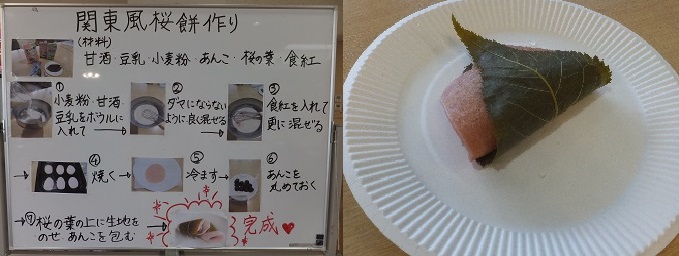 関東風桜餅作り
(材料)
甘酒・豆乳・小麦粉・あんこ・桜の葉・食紅
① 小麦粉・甘酒
豆乳をボウルに
入れて
② ダマにならない
ように良く混ぜる
③ 食紅を入れて
更に混ぜる
④ 焼く
⑤ 冷ます
⑥ あんこを
丸めておく
⑦ 桜の葉の上に生地を
のせ あんこを包む
完成